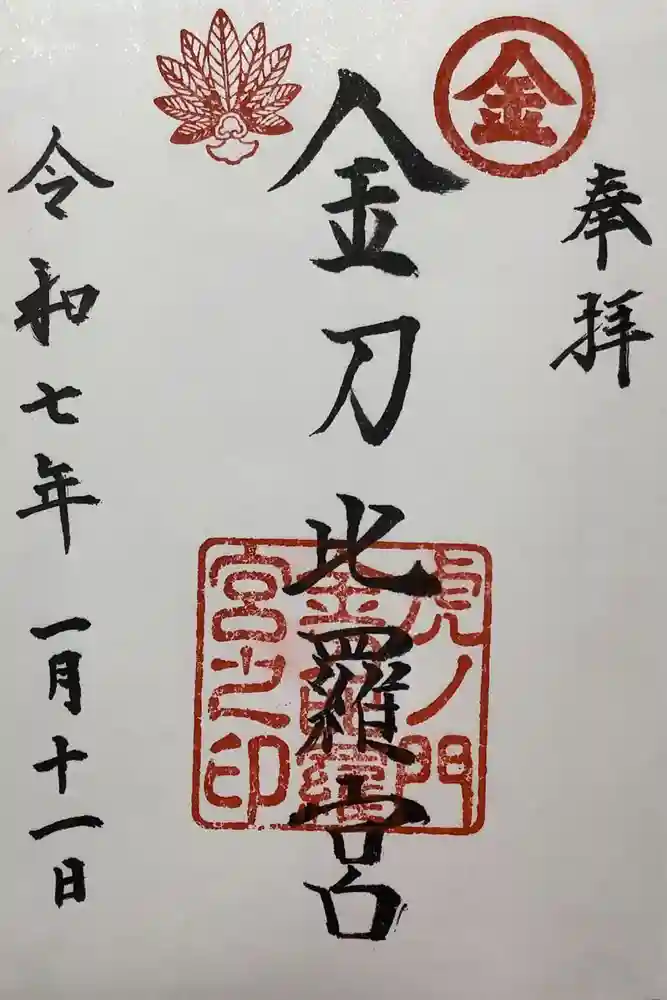 奉拝
金
金刀比羅宮
虎ノ門
金刀比羅
宮之印
令和七年 一月十一日